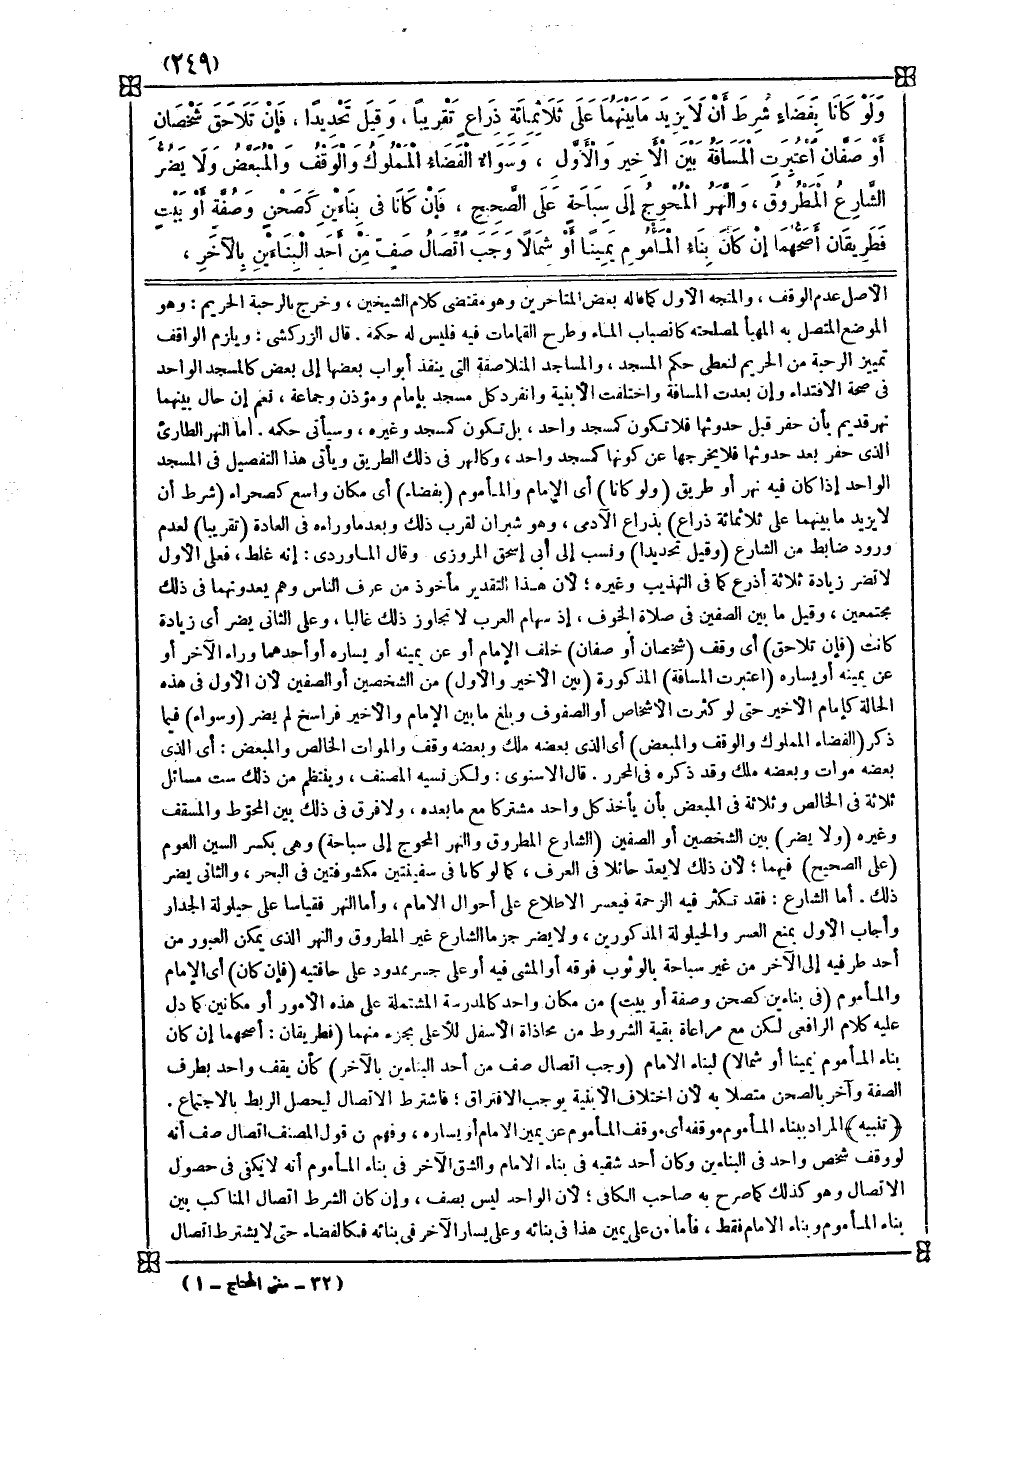 (٢٤٩)
وَلَوْ كَانَا بِفَضَاءٍ شُرِطَ أَنْ لَا يَزِيدَ مَا بَيْنَهُمَا عَلَى ثَلَاثِمِائَةِ ذِرَاعٍ تَقْرِيبًا ، وَقِيلَ تَحْدِيدًا ، فَإِنْ تَلَاحَقَ شَخْصَانِ
أَوْ صَفَّانِ اعْتُبِرَتِ الْمَسَافَةُ بَيْنَ الْأَخِيرِ وَالْأَوَّلِ ، وَسَوَاءٌ الْفَضَاءُ الْمَمْلُوكُ وَالْوَقْفُ وَالْمُبَعَّضُ وَلَا يَضُرُّ
الشَّارِعُ الْمَطْرُوقُ ، وَالنَّهْرُ الْمُحْوِجُ إِلَى سِبَاحَةٍ عَلَى الصَّحِيحِ ، فَإِنْ كَانَا فِى بِنَاءَيْنِ كَصَحْنٍ وَصُفَّةٍ أَوْ بَيْتٍ
فَطَرِيقَانِ أَصَحُّهُمَا إِنْ كَانَ بِنَاءُ الْمَأْمُومِ يَمِينًا أَوْ شِمَالًا وَجَبَ اتِّصَالُ صَفٍّ مِنْ أَحَدِ الْبِنَاءَيْنِ بِالْآخَرِ ،
الأصل عدم الوقف ، والمتجه الأول كما قاله بعض المتأخرين وهو مقتضى كلام الشيخين ، وخرج بالرحبة الحريم : وهو
الموضع المتصل به المهيأ لمصلحته كانصباب الماء وطرح القمامات فيه فليس له حكمه . قال الزركشى : ويلزم الواقف
تمييز الرحبة من الحريم لتعطى حكم المسجد ، والمساجد المتلاصقة التى ينفذ أبواب بعضها إلى بعض كالمسجد الواحد
فى صحة الاقتداء وإن بعدت المسافة واختلفت الأبنية وانفرد كل مسجد بإمام ومؤذن وجماعة ، نعم إن حال بينهما
نهر قديم بأن حفر قبل حدوثها فلا تكون كمسجد واحد ، بل تكون كمسجد وغيره ، وسيأتى حكمه . أما النهر الطارئ
الذى حفر بعد حدوثها فلا يخرجها عن كونها كمسجد واحد ، وكالنهر فى ذلك الطريق ويأتى هذا التفصيل فى المسجد
الواحد إذا كان فيه نهر أو طريق (ولو كانا) أى الإمام والمأموم (بفضاء) أى مكان واسع كصحراء (شرط أن
لا يزيد ما بينهما على ثلاثمائة ذراع) بذراع الآدمى ، وهو شبران لقرب ذلك وبعد ما وراءه فى العادة (تقريبا) لعدم
ورود ضابط من الشارع (وقيل تحديدا) ونسب إلى أبى إسحق المروزى وقال الماوردى : إنه غلط ، فعلى الأول
لا تضر زيادة ثلاثة أذرع كما فى التهذيب وغيره ؛ لأن هذا التقدير مأخوذ من عرف الناس وهم يعدونهما فى ذلك
مجتمعين ، وقيل ما بين الصفين فى صلاة الخوف ، إذ سهام العرب لا تجاوز ذلك غالبا ، وعلى الثانى يضر أى زيادة
كانت (فإن تلاحق) أى وقف (شخصان أو صفان) خلف الإمام أو عن يمينه أو يساره أو أحدهما وراء الآخر أو
عن يمينه أو يساره (اعتبرت المسافة) المذكورة (بين الأخير والأول) من الشخصين أو الصفين لأن الأول فى هذه
الحالة كإمام الأخير حتى لو كثرت الأشخاص أو الصفوف وبلغ ما بين الإمام والأخير فراسخ لم يضر (وسواء) فيما
ذكر (الفضاء المملوك والوقف والمبعض) أى الذى بعضه ملك وبعضه وقف والموات الخالص والمبعض : أى الذى
بعضه موات وبعضه ملك وقد ذكره فى المحرر . قال الأسنوى : ولكن نسيه المصنف ، وينتظم من ذلك ست مسائل
ثلاثة فى الخالص وثلاثة فى المبعض بأن يأخذ كل واحد مشتركا مع ما بعده ، ولا فرق فى ذلك بين المحوّط والمسقف
وغيره (ولا يضر) بين الشخصين أو الصفين (الشارع المطروق والنهر المحوج إلى سباحة) وهى بكسر السين العوم
(على الصحيح) فيهما ؛ لأن ذلك لا يعدّ حائلا فى العرف ، كما لو كانا فى سفينتين مكشوفتين فى البحر ، والثانى يضر
ذلك . أما الشارع : فقد تكثر فيه الزحمة فيعسر الاطلاع على أحوال الإمام ، وأما النهر فقياسا على حيلولة الجدار
وأجاب الأول بمنع العسر والحيلولة المذكورين ، ولا يضر جزما الشارع غير المطروق والنهر الذى يمكن العبور من
أحد طرفيه إلى الآخر من غير سباحة بالوثوب فوقه أو المشى فيه أو على جسر ممدود على حافتيه (فإن كان) أى الإمام
والمأموم (فى بناءين كصحن وصفة أو بيت) من مكان واحد كالمدرسة المشتملة على هذه الأمور أو مكانين كما دل
عليه كلام الرافعى لكن مع مراعاة بقية الشروط من محاذاة الأسفل للأعلى بجزء منهما (فطريقان : أصحهما إن كان
بناء المأموم يمينا أو شمالا) لبناء الإمام (وجب اتصال صف من أحد البناءين بالآخر) كأن يقف واحد بطرف
الصفة وآخر بالصحن متصلا به لأن اختلاف الأبنية يوجب الافتراق ؛ فاشترط الاتصال ليحصل الربط بالاجتماع .
﴿ تنبيه ﴾ المراد ببناء المأموم موقفه أى موقف المأموم عن يمين الإمام أو يساره ، وفهم من قول المصنف اتصال صف أنه
لو وقف شخص واحد فى البناءين وكان أحد شقيه فى بناء الإمام والشق الآخر فى بناء المأموم أنه لا يكفى فى حصول
الاتصال وهو كذلك كما صرح به صاحب الكافى ؛ لأن الواحد ليس بصف ، وإن كان الشرط اتصال المناكب بين
بناء المأموم وبناء الإمام فقط ، فأما من على يمين هذا فى بنائه وعلى يسار الآخر فى بنائه فكالفضاء حتى لا يشترط اتصال
(٣٢ - مغنى المحتاج - ١)